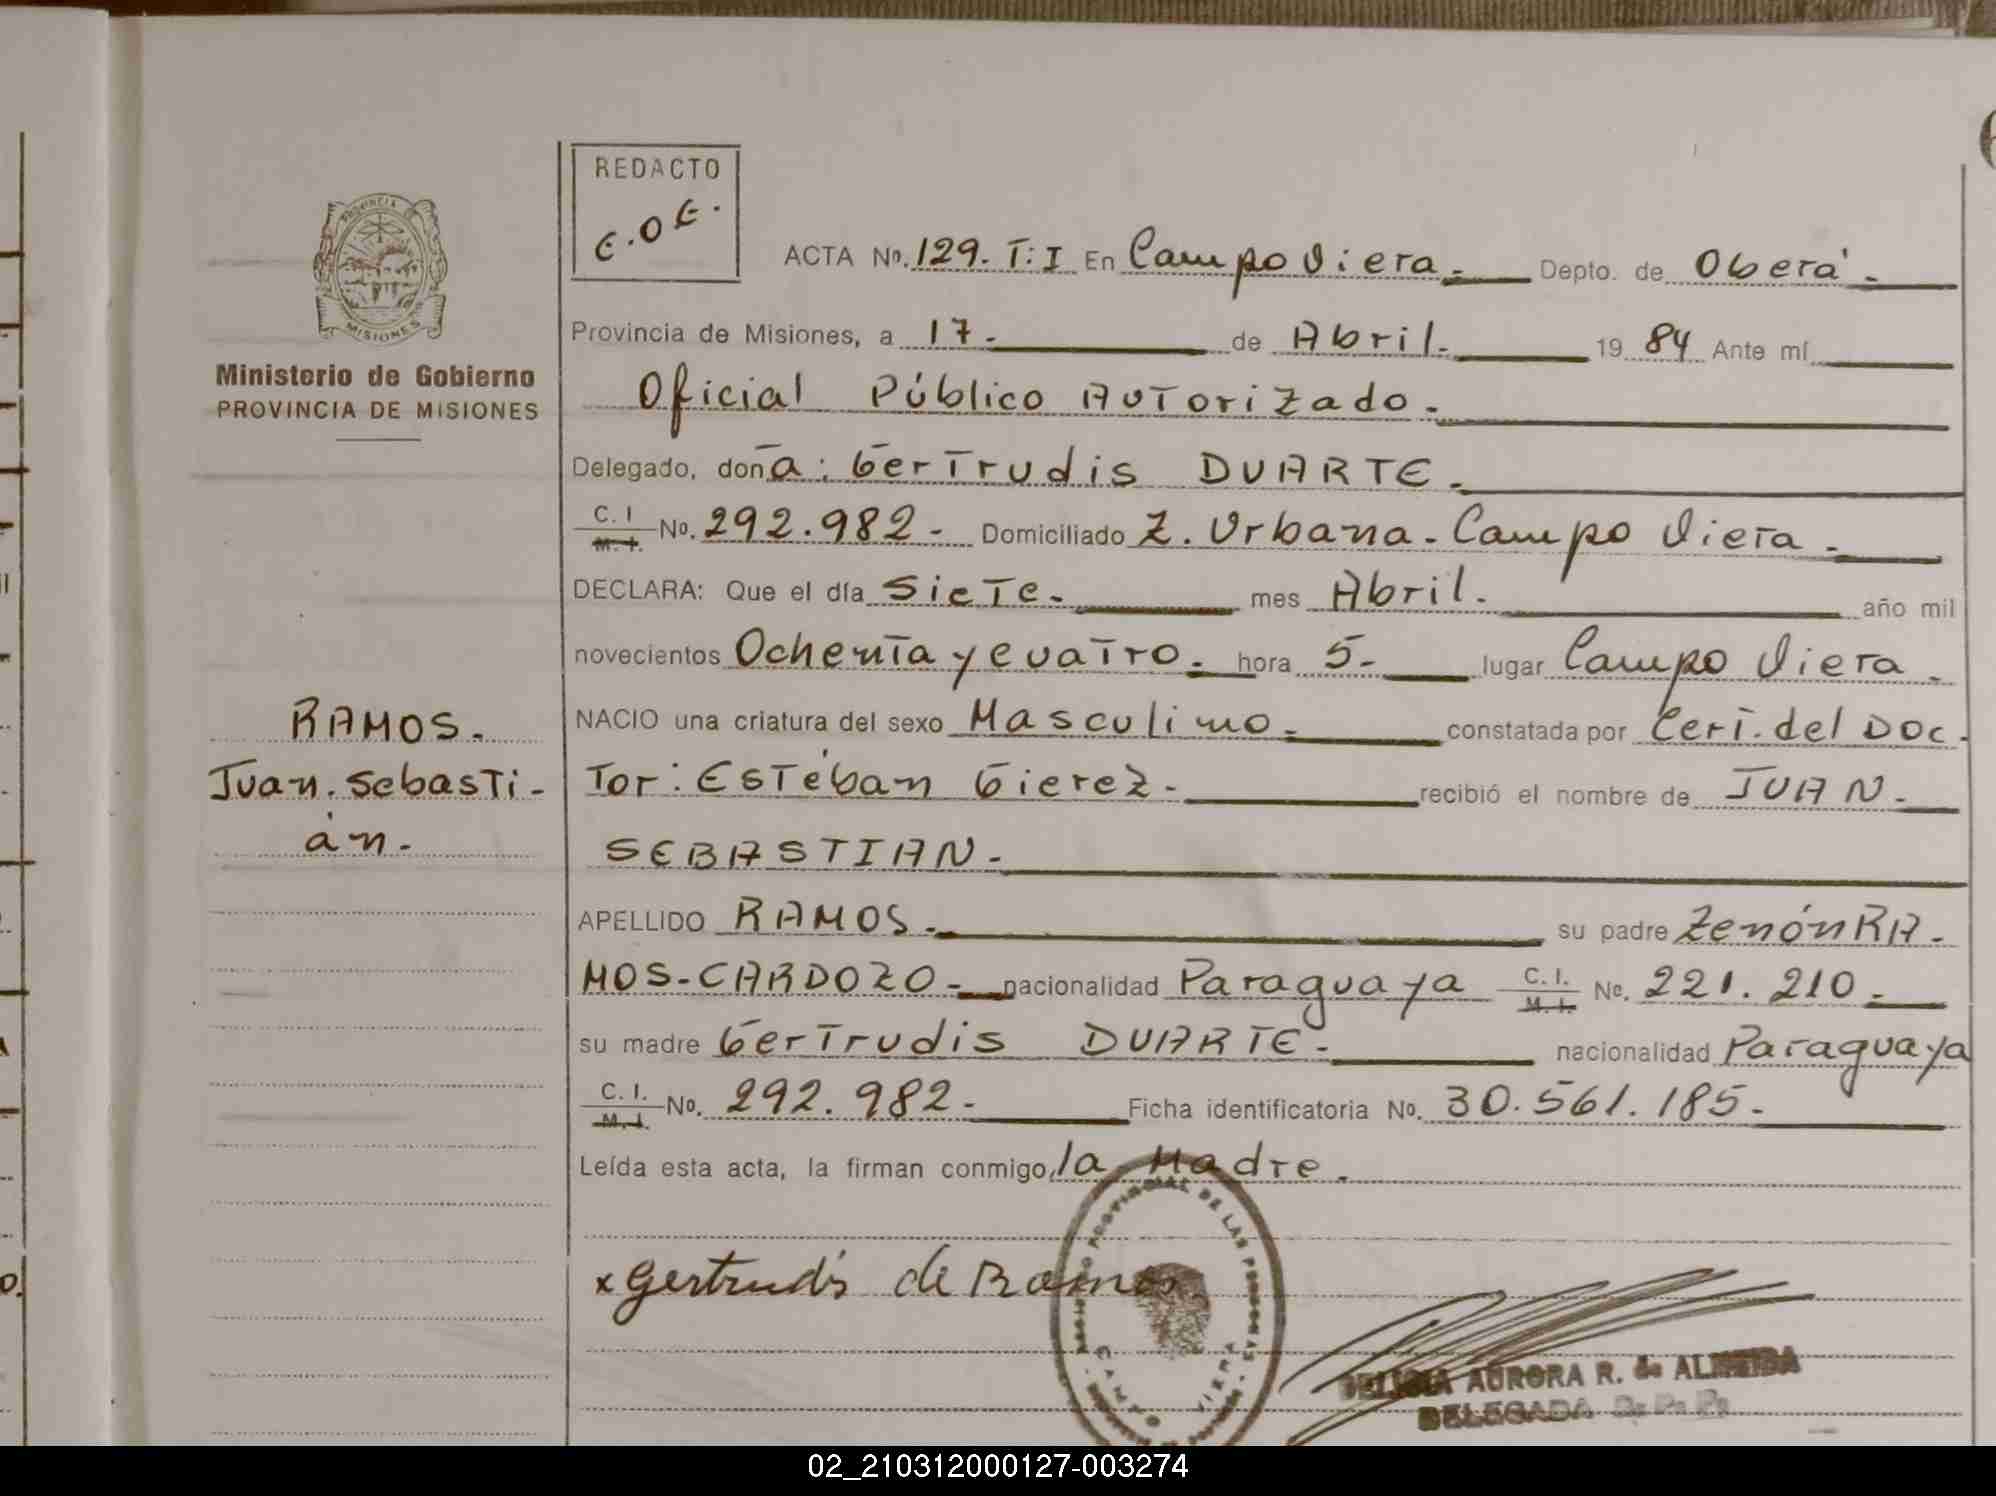 REDACTO
E.O.E.
PROVINCIA DE
MISIONES
Ministerio de Gobierno
PROVINCIA DE MISIONES
ACTA Nº. 129. T: I En Campo Viera.- Depto. de Oberá.-
Provincia de Misiones, a 17.- de Abril.- 19 84 Ante mí
Oficial Público Autorizado.-
Delegado, doña: Gertrudis DUARTE.-
C. I
M. I. Nº. 292.982.- Domiciliado Z. Urbana. Campo Viera.-
DECLARA: Que el día Siete.- mes Abril.- año mil
novecientos Ochenta y cuatro.- hora 5.- lugar Campo Viera.-
NACIO una criatura del sexo Masculino.- constatada por Cert. del Doc-
tor: Estéban Gierez.- recibió el nombre de JUAN.-
SEBASTIAN.-
APELLIDO RAMOS.- su padre Zenón RA-
MOS-CARDOZO.- nacionalidad Paraguaya C. I.
M. I. Nº. 221.210.-
su madre Gertrudis DUARTE.- nacionalidad Paraguaya
C. I.
M. I. Nº. 292.982.- Ficha identificatoria Nº. 30.561.185.-
Leída esta acta, la firman conmigo, la Madre.-
RAMOS.-
Juan. Sebasti-
án.-
x Gertrudis de Ramos.
REGISTRO PROVINCIAL DE LAS PERSONAS
CAMPO VIERA
DELICIA AURORA R. de ALMEIDA
DELEGADA R. P. P.
02_210312000127-003274